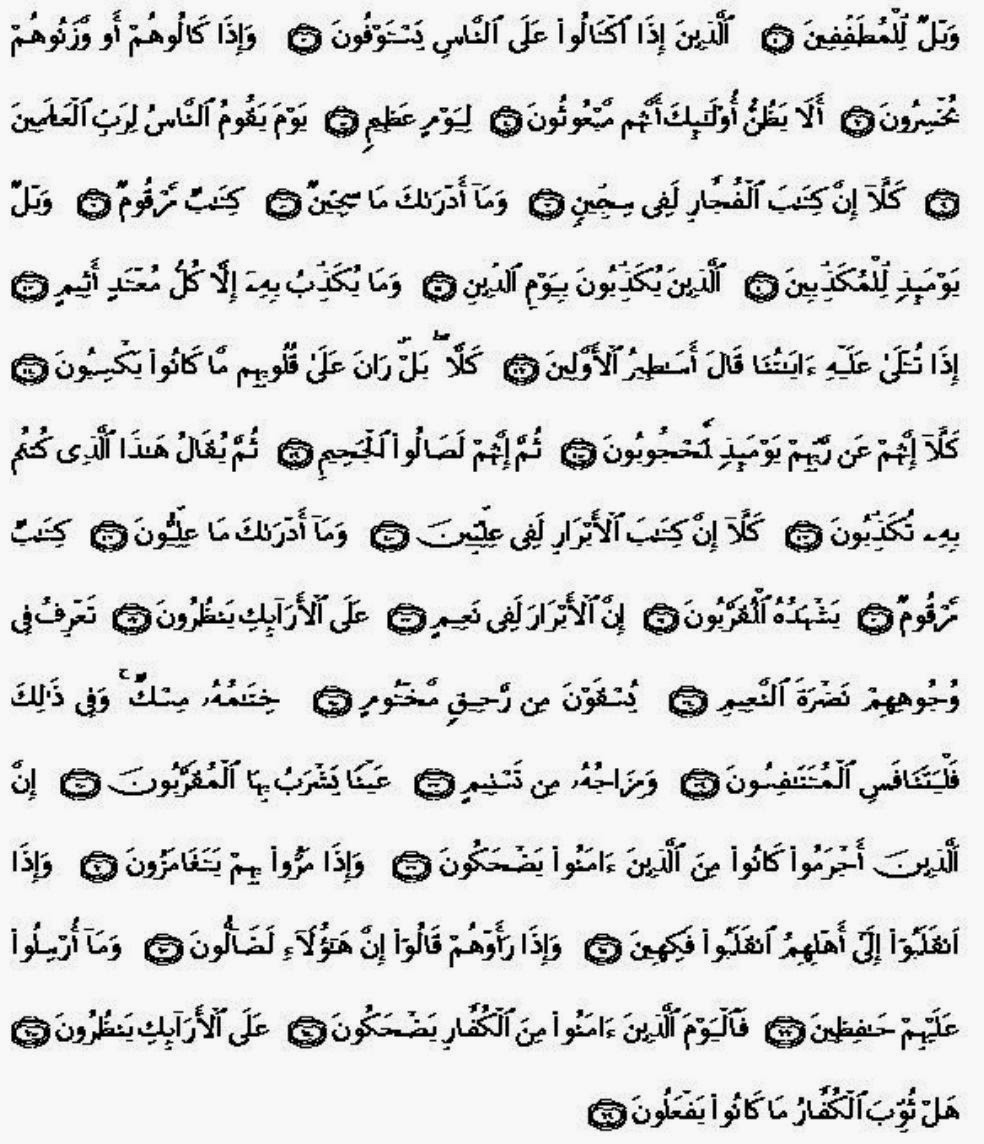 وَيْلٌ لِّلْمُطَفِّفِينَ ۝١ ٱلَّذِينَ إِذَا ٱكْتَالُوا۟ عَلَى ٱلنَّاسِ يَسْتَوْفُونَ ۝٢ وَإِذَا كَالُوهُمْ أَو وَّزَنُوهُمْ
يُخْسِرُونَ ۝٣ أَلَا يَظُنُّ أُو۟لَـٰٓئِكَ أَنَّهُم مَّبْعُوثُونَ ۝٤ لِيَوْمٍ عَظِيمٍ ۝٥ يَوْمَ يَقُومُ ٱلنَّاسُ لِرَبِّ ٱلْعَـٰلَمِينَ
۝٦ كَلَّآ إِنَّ كِتَـٰبَ ٱلْفُجَّارِ لَفِى سِجِّينٍ ۝٧ وَمَآ أَدْرَىٰكَ مَا سِجِّينٌ ۝٨ كِتَـٰبٌ مَّرْقُومٌ ۝٩ وَيْلٌ
يَوْمَئِذٍ لِّلْمُكَذِّبِينَ ۝١٠ ٱلَّذِينَ يُكَذِّبُونَ بِيَوْمِ ٱلدِّينِ ۝١١ وَمَا يُكَذِّبُ بِهِۦٓ إِلَّا كُلُّ مُعْتَدٍ أَثِيمٍ ۝١٢
إِذَا تُتْلَىٰ عَلَيْهِ ءَايَـٰتُنَا قَالَ أَسَـٰطِيرُ ٱلْأَوَّلِينَ ۝١٣ كَلَّا ۖ بَلْ ۜ رَانَ عَلَىٰ قُلُوبِهِم مَّا كَانُوا۟ يَكْسِبُونَ ۝١٤
كَلَّآ إِنَّهُمْ عَن رَّبِّهِمْ يَوْمَئِذٍ لَّمَحْجُوبُونَ ۝١٥ ثُمَّ إِنَّهُمْ لَصَالُوا۟ ٱلْجَحِيمِ ۝١٦ ثُمَّ يُقَالُ هَـٰذَا ٱلَّذِى كُنتُم
بِهِۦ تُكَذِّبُونَ ۝١٧ كَلَّآ إِنَّ كِتَـٰبَ ٱلْأَبْرَارِ لَفِى عِلِّيِّينَ ۝١٨ وَمَآ أَدْرَىٰكَ مَا عِلِّيُّونَ ۝١٩ كِتَـٰبٌ
مَّرْقُومٌ ۝٢٠ يَشْهَدُهُ ٱلْمُقَرَّبُونَ ۝٢١ إِنَّ ٱلْأَبْرَارَ لَفِى نَعِيمٍ ۝٢٢ عَلَى ٱلْأَرَآئِكِ يَنظُرُونَ ۝٢٣ تَعْرِفُ فِى
وُجُوهِهِمْ نَضْرَةَ ٱلنَّعِيمِ ۝٢٤ يُسْقَوْنَ مِن رَّحِيقٍ مَّخْتُومٍ ۝٢٥ خِتَـٰمُهُۥ مِسْكٌ ۚ وَفِى ذَٰلِكَ
فَلْيَتَنَافَسِ ٱلْمُتَنَـٰفِسُونَ ۝٢٦ وَمِزَاجُهُۥ مِن تَسْنِيمٍ ۝٢٧ عَيْنًا يَشْرَبُ بِهَا ٱلْمُقَرَّبُونَ ۝٢٨ إِنَّ
ٱلَّذِينَ أَجْرَمُوا۟ كَانُوا۟ مِنَ ٱلَّذِينَ ءَامَنُوا۟ يَضْحَكُونَ ۝٢٩ وَإِذَا مَرُّوا۟ بِهِمْ يَتَغَامَزُونَ ۝٣٠ وَإِذَا
ٱنقَلَبُوٓا۟ إِلَىٰٓ أَهْلِهِمُ ٱنقَلَبُوا۟ فَكِهِينَ ۝٣١ وَإِذَا رَأَوْهُمْ قَالُوٓا۟ إِنَّ هَـٰٓؤُلَآءِ لَضَآلُّونَ ۝٣٢ وَمَآ أُرْسِلُوا۟
عَلَيْهِمْ حَـٰفِظِينَ ۝٣٣ فَٱلْيَوْمَ ٱلَّذِينَ ءَامَنُوا۟ مِنَ ٱلْكُفَّارِ يَضْحَكُونَ ۝٣٤ عَلَى ٱلْأَرَآئِكِ يَنظُرُونَ ۝٣٥
هَلْ ثُوِّبَ ٱلْكُفَّارُ مَا كَانُوا۟ يَفْعَلُونَ ۝٣٦